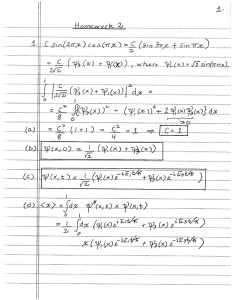 1.
Homework 2
1. C sin(2πx) cos(πx) = C/2 (sin 3πx + sin πx)
= C/2√2 (ψ₃(x) + ψ₁(x)), where ψₙ(x) = √2 sin(nπx)
∫₀¹ |C/2√2 (ψ₃(x) + ψ₁(x))|² dx =
= C²/8 ∫₀¹ {(ψ₃(x))² + (ψ₁(x))² + 2ψ₁(x)ψ₃(x)} dx
→ 0
(a) = C²/8 (1+1) = C²/4 = 1 ⇒ C = 1
(b) ψ(x,0) = 1/√2 (ψ₁(x) + ψ₃(x))
(c) ψ(x,t) = 1/√2 (ψ₁(x) e^(-iE₁t/ħ) + ψ₃(x) e^(-iE₃t/ħ))
(d) <x> = ∫₀¹ dx ψ*(x,t) x ψ(x,t)
= 1/2 ∫₀¹ dx (ψ₁(x) e^(iE₁t/ħ) + ψ₃(x) e^(iE₃t/ħ))
x (ψ₁(x) e^(-iE₁t/ħ) + ψ₃(x) e^(-iE₃t/ħ))